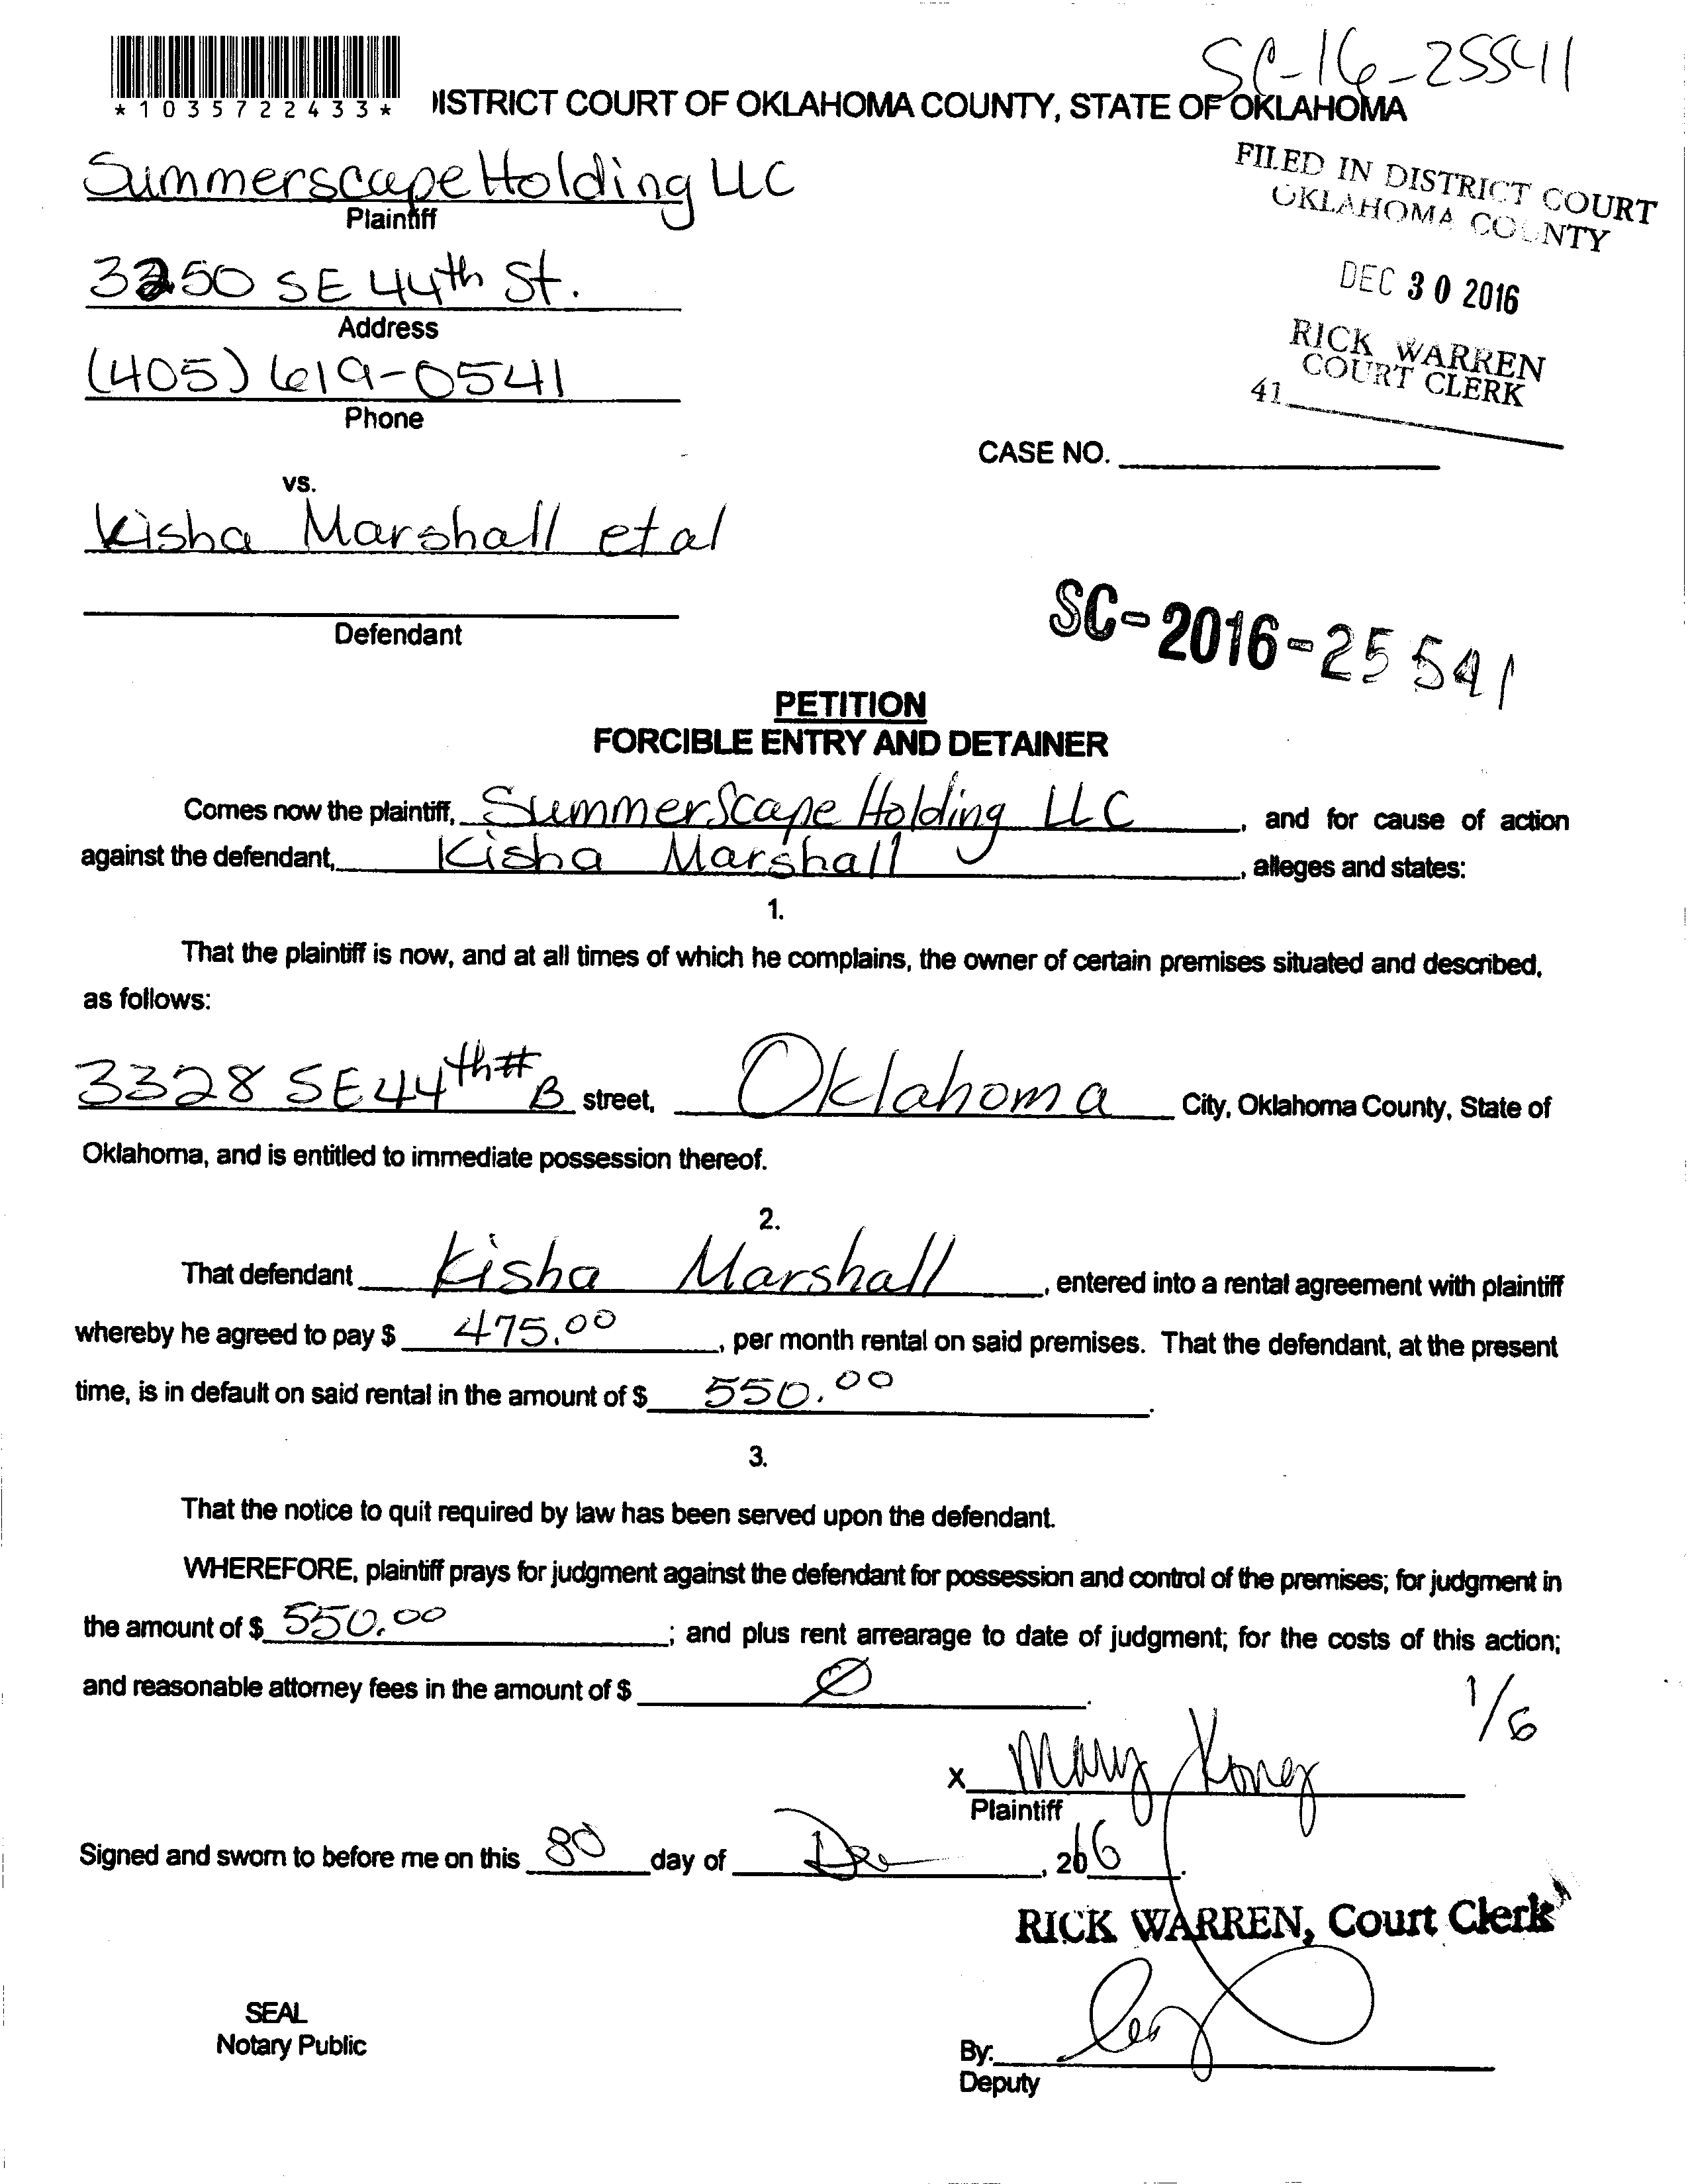 SC-16-25541
*1035722433*
DISTRICT COURT OF OKLAHOMA COUNTY, STATE OF OKLAHOMA
Summerscape Holding LLC
Plaintiff
FILED IN DISTRICT COURT
OKLAHOMA COUNTY
3250 SE 44th St.
Address
DEC 30 2016
(405) 619-0541
Phone
RICK WARREN
COURT CLERK
41
CASE NO.
vs.
Kisha Marshall et al
Defendant
SC-2016-25541
PETITION
FORCIBLE ENTRY AND DETAINER
Comes now the plaintiff, SummerScape Holding LLC, and for cause of action
against the defendant, Kisha Marshall, alleges and states:
1.
That the plaintiff is now, and at all times of which he complains, the owner of certain premises situated and described,
as follows:
3328 SE 44th # B street, Oklahoma City, Oklahoma County, State of
Oklahoma, and is entitled to immediate possession thereof.
2.
That defendant Kisha Marshall, entered into a rental agreement with plaintiff
whereby he agreed to pay $ 475.00, per month rental on said premises. That the defendant, at the present
time, is in default on said rental in the amount of $ 550.00.
3.
That the notice to quit required by law has been served upon the defendant.
WHEREFORE, plaintiff prays for judgment against the defendant for possession and control of the premises; for judgment in
the amount of $ 550.00; and plus rent arrearage to date of judgment; for the costs of this action;
and reasonable attorney fees in the amount of $ Ø.
1/6
X Mary
Plaintiff
Signed and sworn to before me on this 30 day of Dec, 2016.
RICK WARREN, Court Clerk
SEAL
Notary Public
By:
Deputy